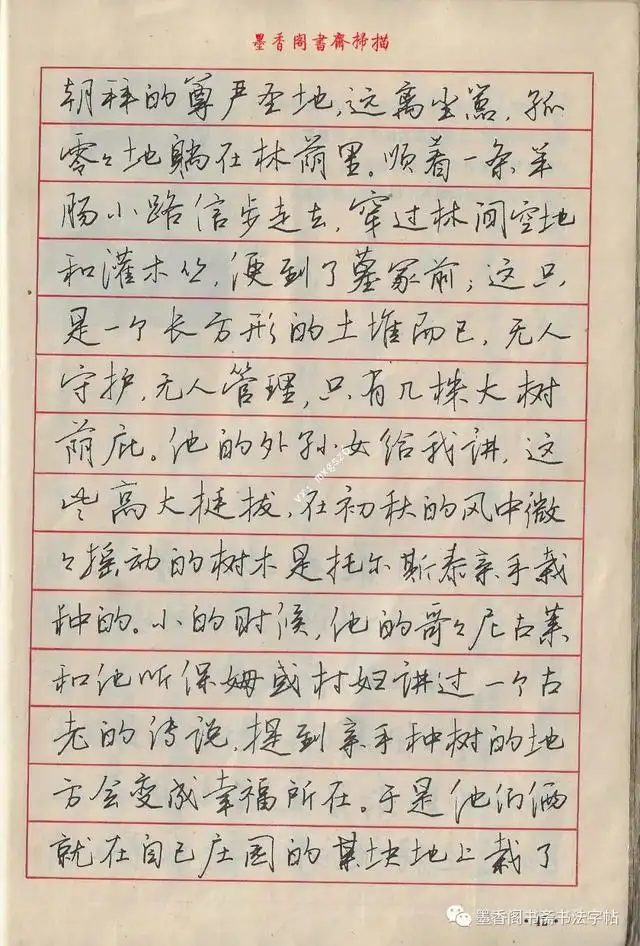 墨香阁書齋掃描
朝拜的尊严圣地,远离尘嚣,孤
零々地躺在林荫里。顺着一条羊
肠小路信步走去,穿过林间空地
和灌木丛,便到了墓冢前;这只
是一个长方形的土堆而已,无人
守护,无人管理,只有几株大树
荫庇。他的外孙女给我讲,这
些高大挺拔,在初秋的风中微
々摇动的树木是托尔斯泰亲手栽
种的。小的时候,他的哥々尼古莱
和他听保姆或村妇讲过一个古
老的传说,提到亲手种树的地
方会变成幸福所在。于是他们俩
就在自己庄园的某块地上栽了
墨香阁书斋书法字帖